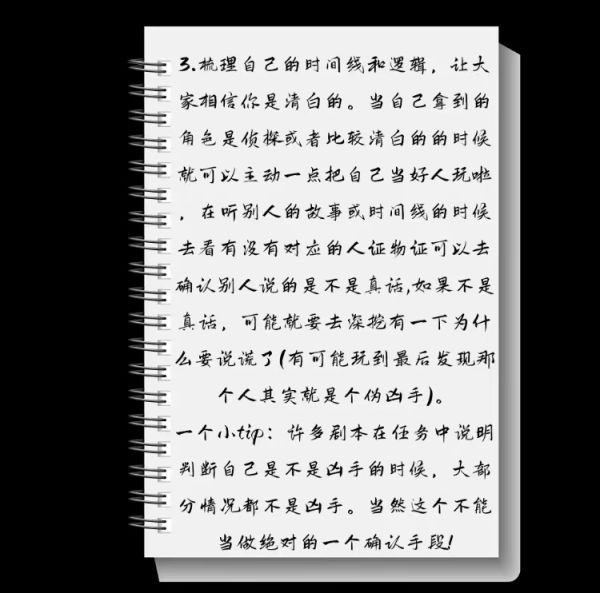 3.梳理自己的时间线和逻辑，让大
家相信你是清白的。当自己拿到的
角色是侦探或者比较清白的的时候
就可以主动一点把自己当好人玩啦
，在听别人的故事或时间线的时候
去看有没有对应的人证物证可以去
确认别人说的是不是真话,如果不是
真话，可能就要去深挖有一下为什
么要说谎了(有可能玩到最后发现那
个人其实就是个伪凶手)。
一个小tip：许多剧本在任务中说明
判断自己是不是凶手的时候，大部
分情况都不是凶手。当然这个不能
当做绝对的一个确认手段!